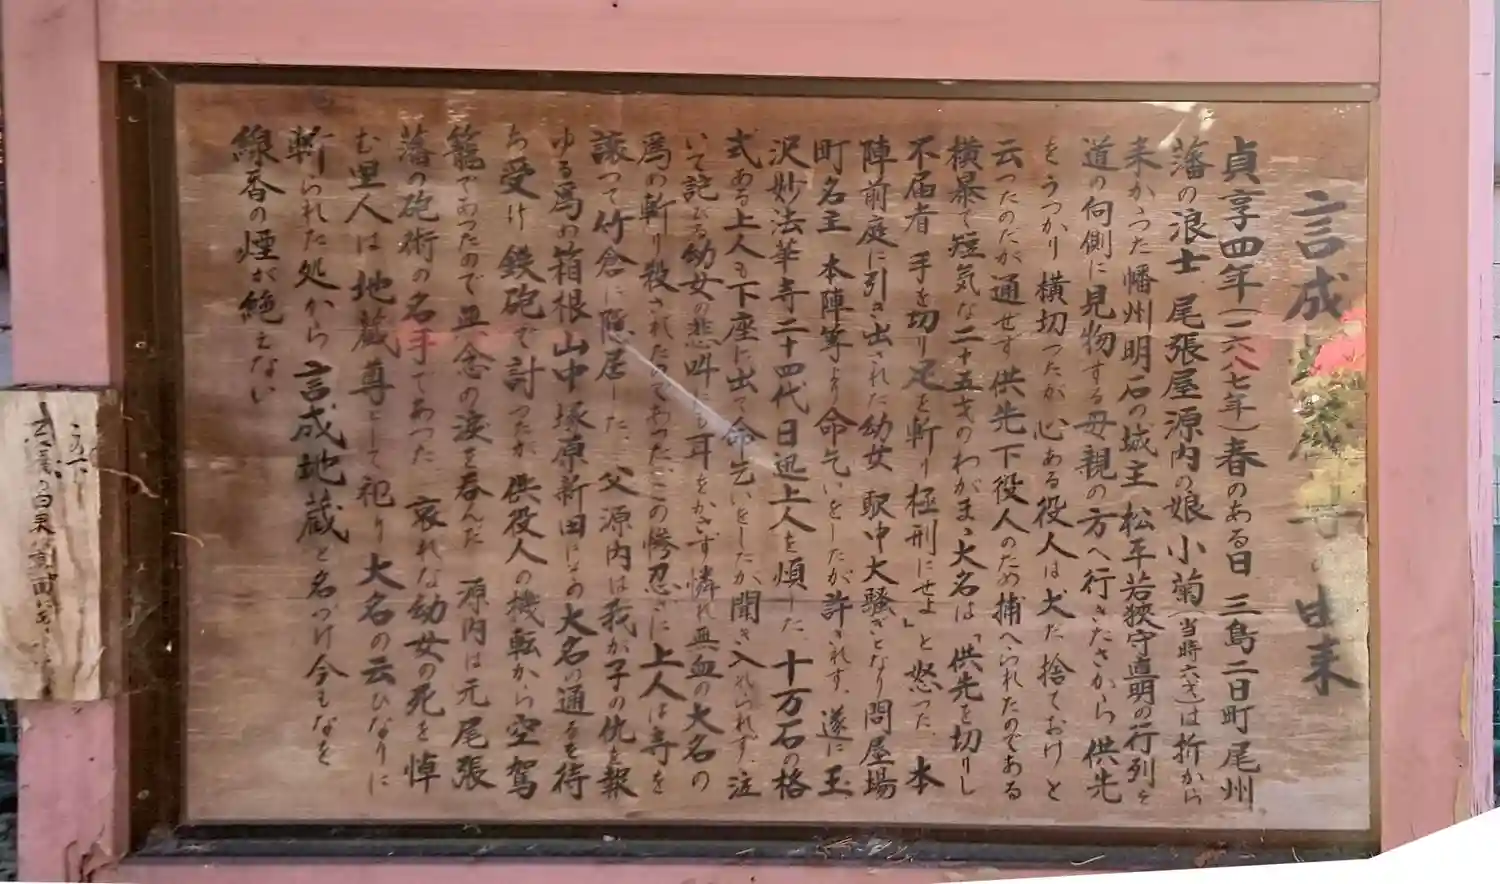 言成地蔵尊の由来
貞享四年(一六八七年)春のある日 三島二日町 尾州
藩の浪士 尾張屋源内の娘 小菊(当時六才)は折から
来かつた幡州明石の城主 松平若狭守直明の行列を
道の向側に見物する母親の方へ行きたさから 供先
をうつかり横切つたが 心ある役人は犬だ捨ておけと
云つたのだが通せず供先下役人のため捕へられたのである
横暴で短気な二十五才のわがまゝ大名は「供先を切りし
不届者 手を切り足を斬り極刑にせよ」と怒つた、本
陣前庭に引き出された幼女 駅中大騒ぎとなり問屋場
町名主 本陣等より命乞いをしたが許されず、遂に玉
沢妙法華寺二十四代日迅上人を煩した、十万石の格
式ある上人も下座に出て命乞いをしたが聞き入れられず、泣
いて詫びる幼女の悲叫にも耳をかさず憐れ無血の大名の
為め斬り殺されたのであつた、この惨忍さに上人は寺を
譲つて竹倉に隠居した、 父源内は我が子の仇を報
ゆる為め箱根山中塚原新田にその大名の通るを待
ち受け 鉄砲で討つたが 供役人の機転から空駕
籠であつたので無念の涙を呑んだ 源内は元尾張
藩の砲術の名手であつた 哀れな幼女の死を悼
む里人は地蔵尊として祀り大名の云ひなりに
斬られた処から 言成地蔵と名づけ今もなを
線香の煙が絶えない
この下